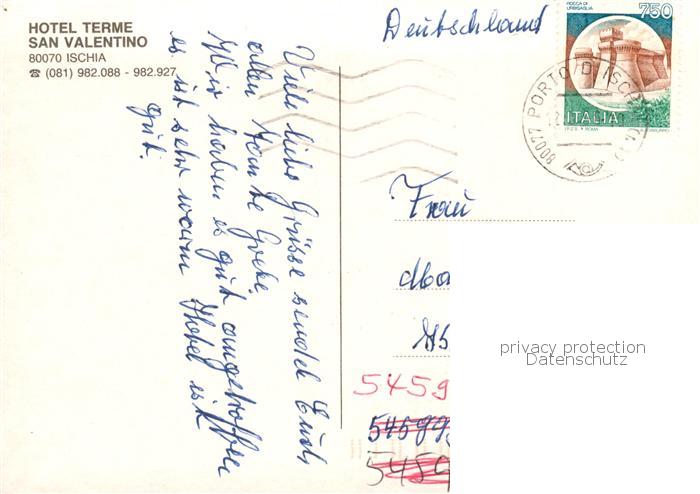 HOTEL TERME
SAN VALENTINO
80070 ISCHIA
☎ (081) 982.088 - 982.927
Deutschland
ROCCA DI
URBISAGLIA
750
ITALIA
I.P.Z.S. - ROMA
80077 PORTO D'ISCHIA
Viele liebe Grüsse sendet Euch
allen Tante Grete
Wir haben es gut angetroffen
es ist sehr warm Hotel ist
gut.
Frau
privacy protection
Datenschutz
5459
54599
5459